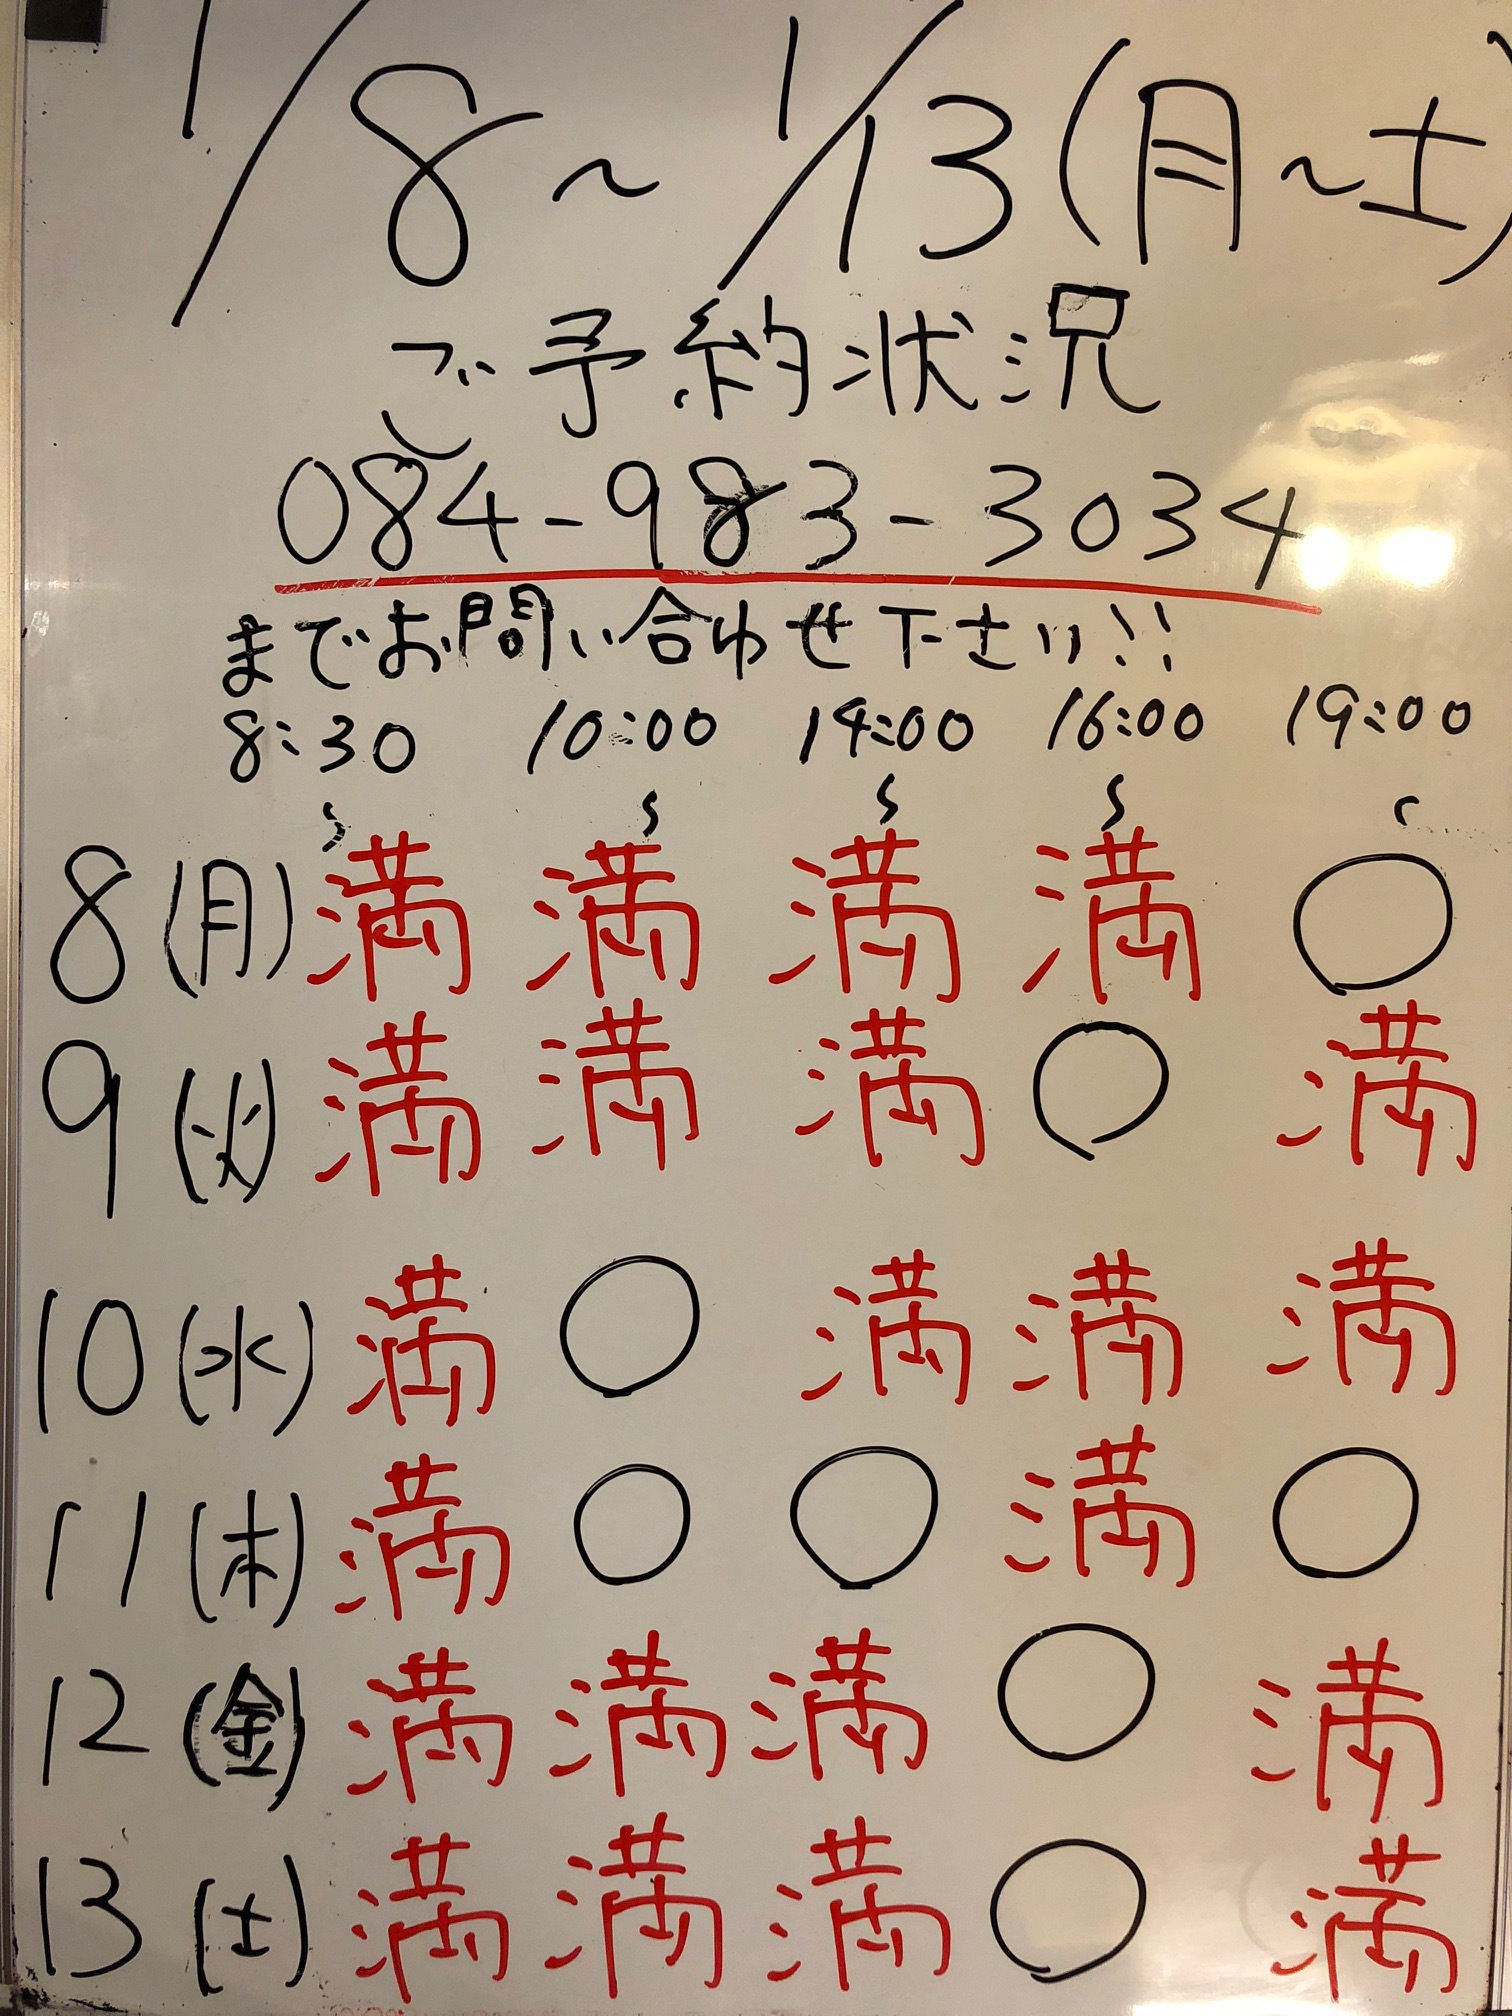 1/8～1/13(月～土)
ご予約状況
084-983-3034
までお問い合わせ下さい!!
8:30 10:00 14:00 16:00 19:00
〜 〜 〜 〜 〜
8(月) 満 満 満 満 ○
9(火) 満 満 満 ○ 満
10(水) 満 ○ 満 満 満
11(木) 満 ○ ○ 満 ○
12(金) 満 満 満 ○ 満
13(土) 満 満 満 ○ 満